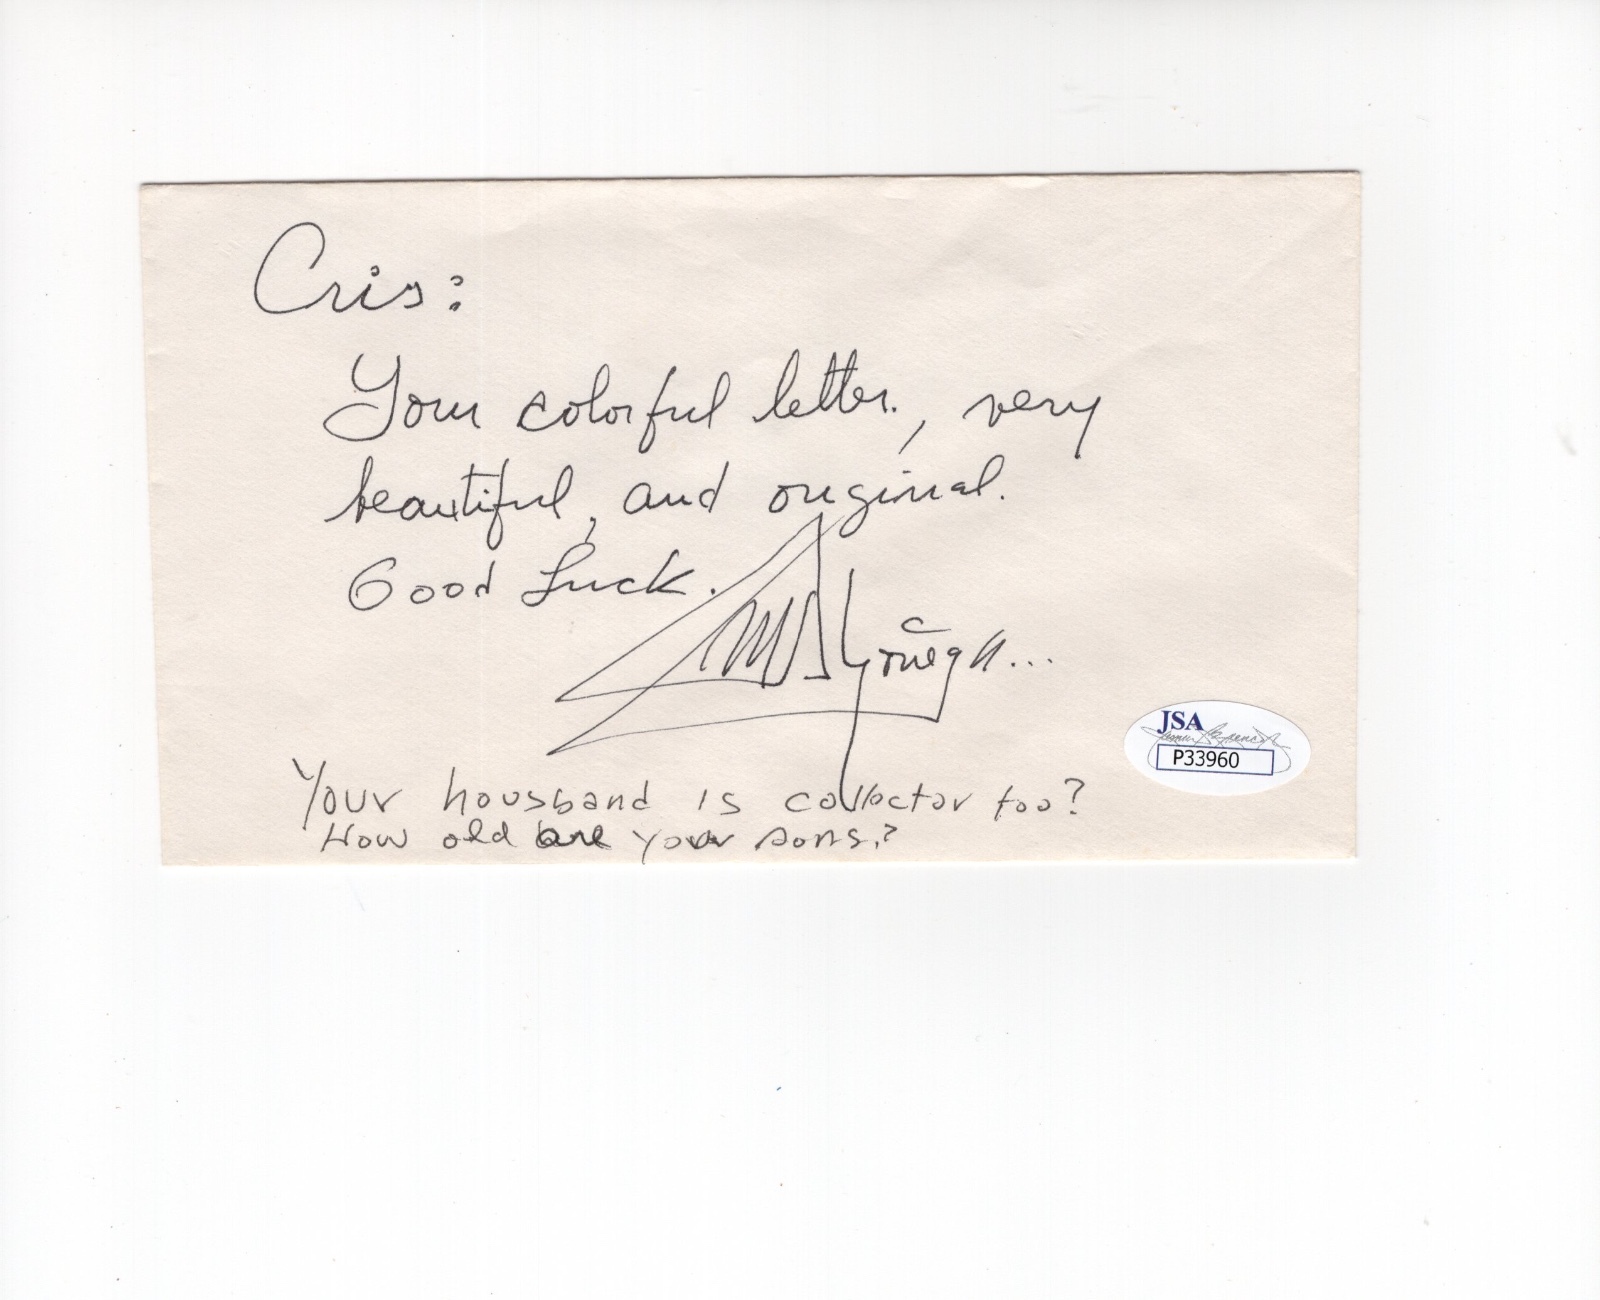 Cris:
Your colorful letter., very
beautiful, and original.
Good Luck.
JSA
P33960
Your housband is collector too?
How old are your sons?